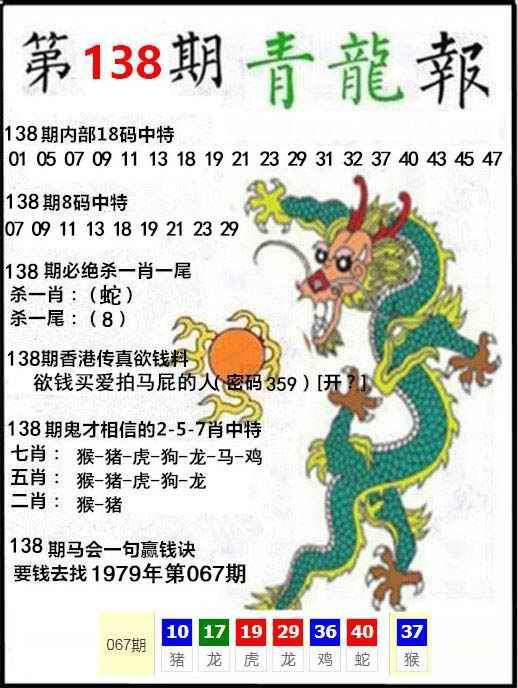 第138期青龍報
138期内部18码中特
01 05 07 09 11 13 18 19 21 23 29 31 32 37 40 43 45 47
138期8码中特
07 09 11 13 18 19 21 23 29
138期必绝杀一肖一尾
杀一肖：（蛇）
杀一尾：（8）
138期香港传真欲钱料
欲钱买爱拍马屁的人（密码359）[开？]
138期鬼才相信的2-5-7肖中特
七肖： 猴-猪-虎-狗-龙-马-鸡
五肖： 猴-猪-虎-狗-龙
二肖： 猴-猪
138期马会一句赢钱诀
要钱去找1979年第067期
067期 10 17 19 29 36 40 37
猪 龙 虎 龙 鸡 蛇 猴